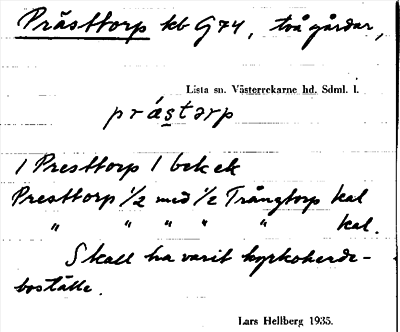 Prästtorp kb G74, två gårdar,
Lista sn. Västerrekarne hd. Sdml. l.
prástɔrp
1 Presttorp 1 bek ek
Presttorp 1/2 med 1/2 Trångtorp kal
" " " " " kal.
Skall ha varit kyrkoherde-
boställe.
Lars Hellberg 1935.